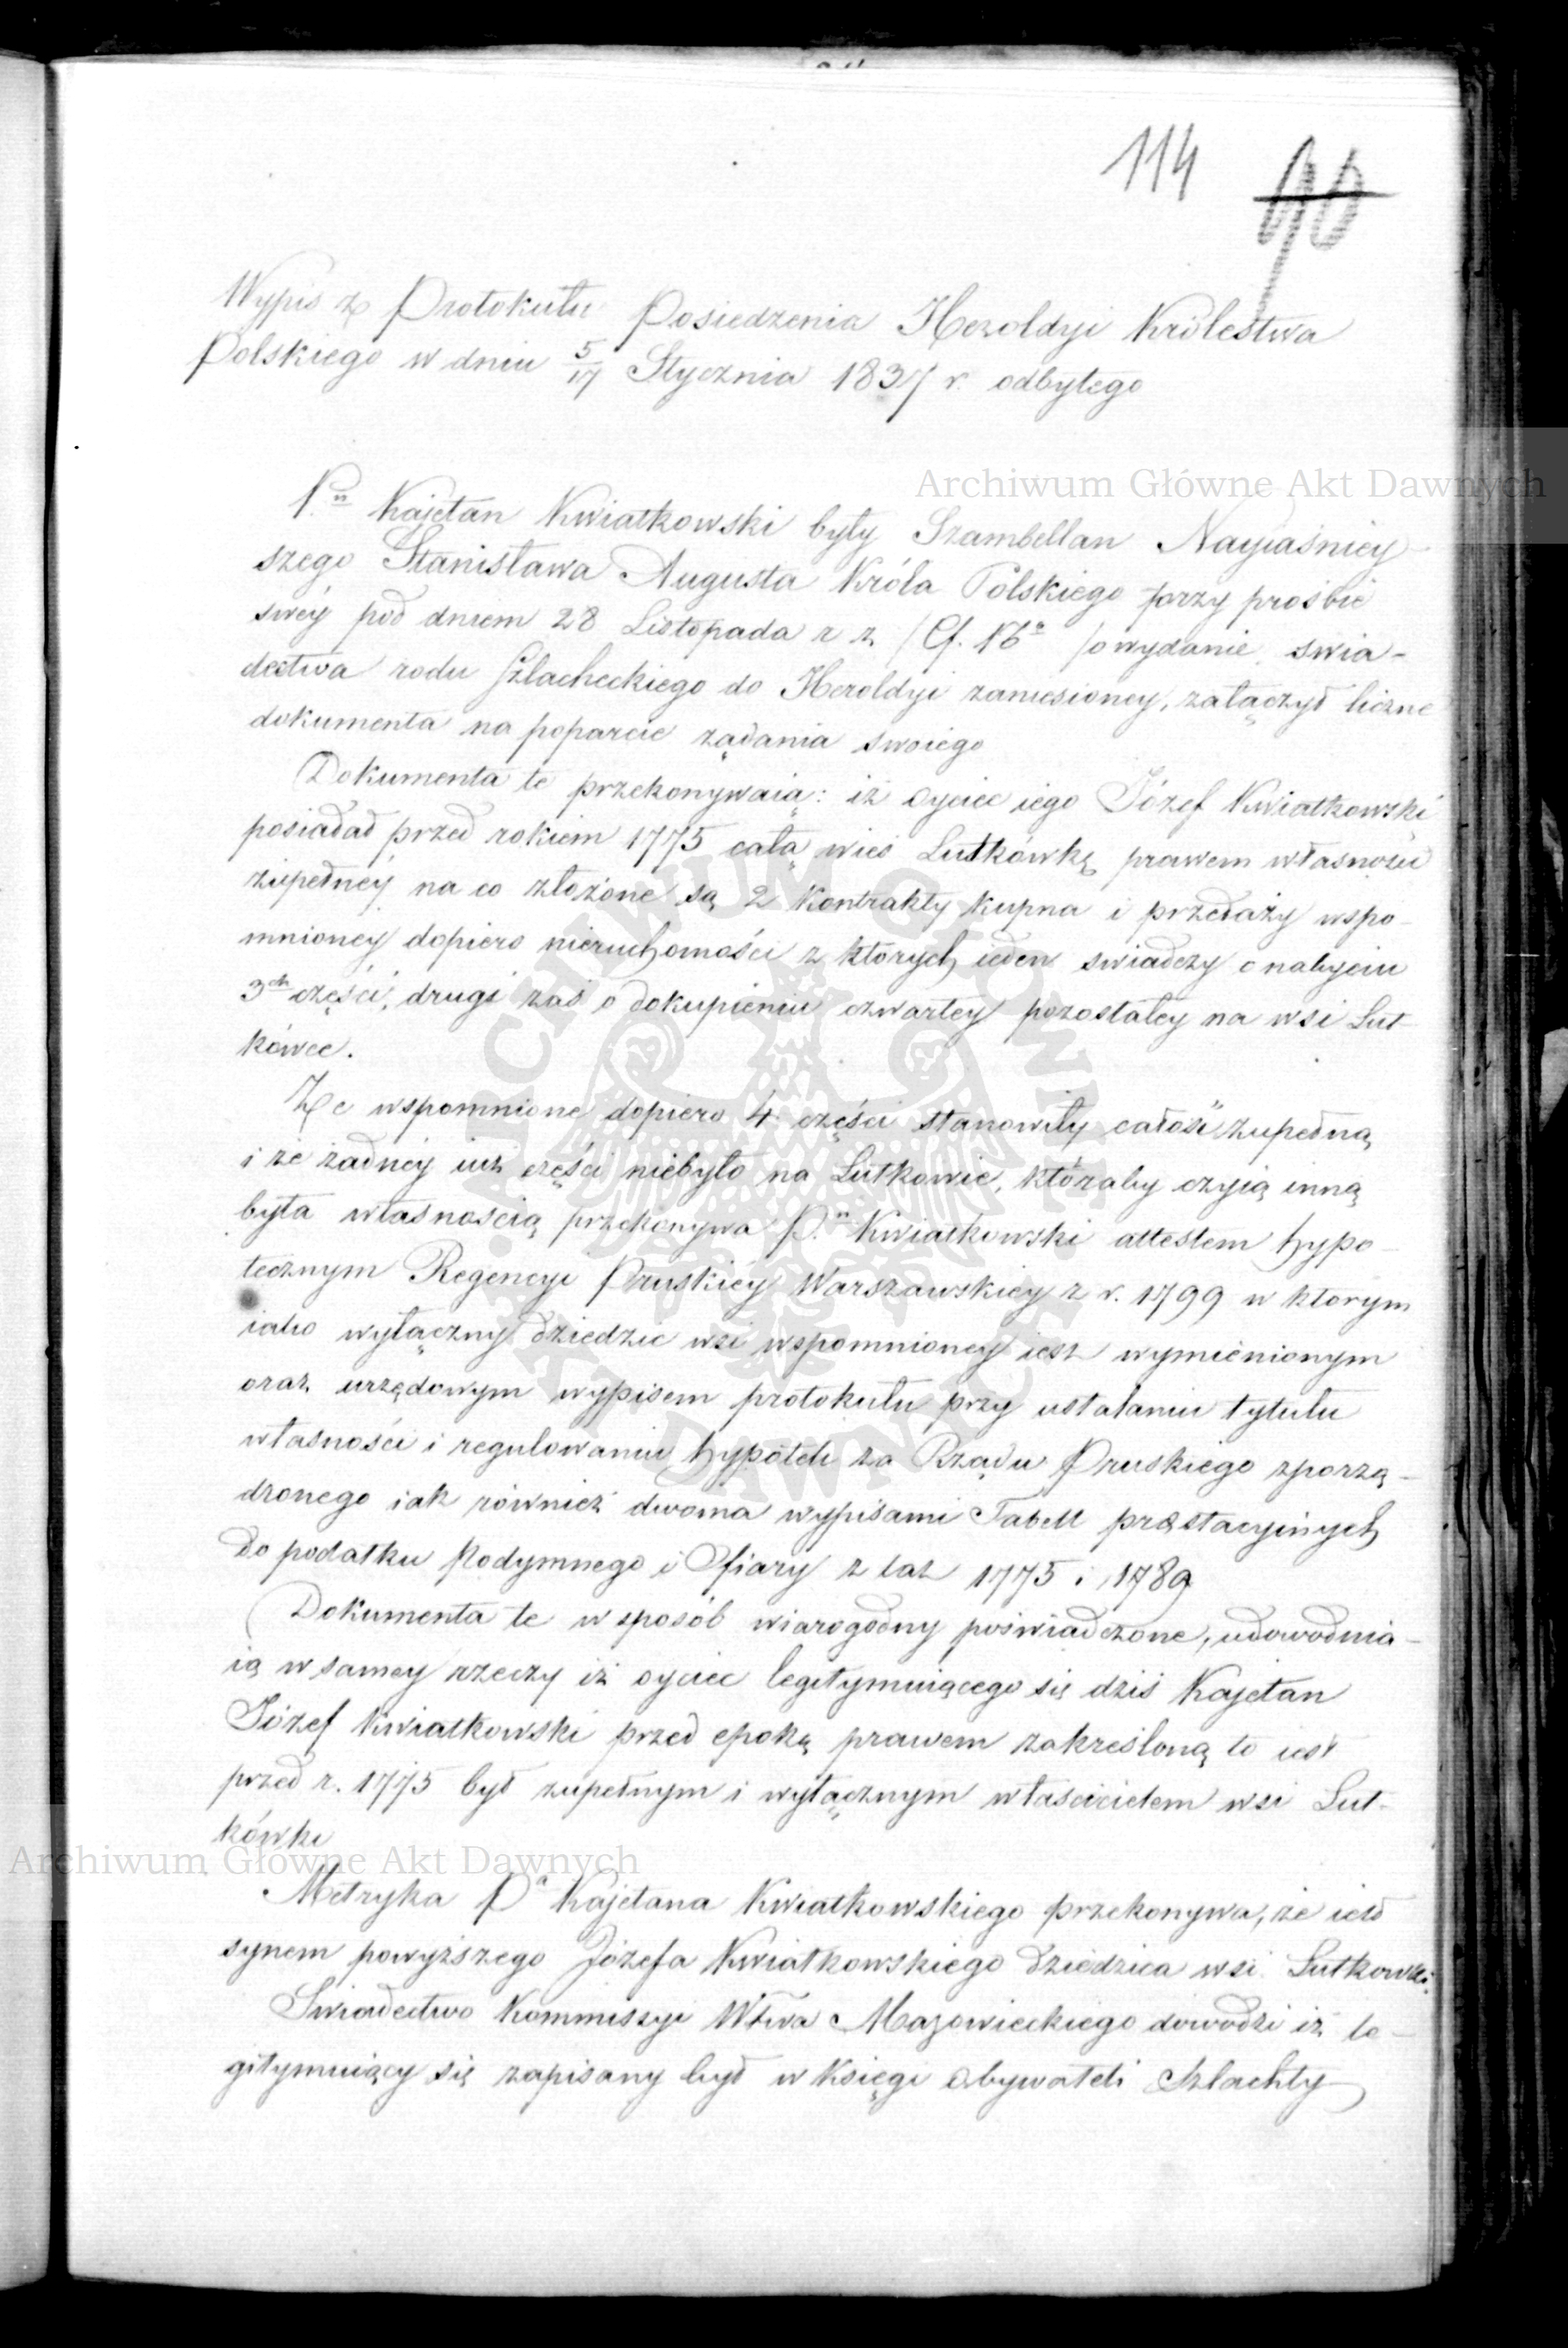 114 90
Wypis z Protokułu Posiedzenia Heroldyi Królestwa
Polskiego w dniu 5/17 Stycznia 1837 r. odbytego
P.n Kajetan Kwiatkowski były Szambellan Nayiaśniey-
szego Stanisława Augusta Króla Polskiego przy prośbie
swéy pod dniem 28 Listopada r z /Cf. 176a /o wydanie swia-
dectwa rodu szlacheckiego do Heroldyi zaniesioney, załączył liczne
dokumenta na poparcie żądania swoiego
Dokumenta te przekonywaią: iż oyciec iego Józef Kwiatkowski
posiadał przed rokiem 1775 całą wieś Lutkówkę prawem własności
zupełnéy na co złożone są 2 kontrakty kupna i przedaży wspo-
mnioney dopiero nieruchomości z których ieden swiadczy o nabyciu
3ch części, drugi zaś o dokupieniu czwartey pozostałey na wsi Lut-
kówce.
Ze wspomnione dopiero 4 części stanowiły całość zupełną
i że żadnéy iuż części niebyło na Lutkowie, któraby czyią inną
była własnością przekonywa P.n Kwiatkowski attestem hypo-
tecznym Regencyi Pruskiéy Warszawskiey z r. 1799 w którym
iako wyłączny dziedzic wsi wspomnioney iest wymienionym
oraz urzędowym wypisem protokułu przy ustalaniu tytułu
własności i regulowaniu hypoteki za Rządu Pruskiego zporzą-
dzonego iak również dwoma wypisami Tabell praestacyinych
do podatku Podymnego i Ofiary z lat 1775 i 1789
Dokumenta te w sposób wiarogodny poświadczone, udowodnia-
ią w samey rzeczy iż oyciec legitymuiącego się dziś Kajetan
Józef Kwiatkowski przed epoką prawem zakreśloną to iest
przed r. 1775 był zupełnym i wyłącznym właścicielem wsi Lut-
kówki
Metryka Pa Kajetana Kwiatkowskiego przekonywa, że iest
synem powyższego Józefa Kwiatkowskiego dziedzica wsi Lutkowki
Swiadectwo Kommissyi Wtwa Mazowieckiego dowodzi iż le-
gitymuiący się zapisany był w Księgi Obywateli Szlachty
Archiwum Główne Akt Dawnych
Archiwum Główne Akt Dawnych
ARCHIWUM GŁÓWNE AKT DAWNYCH